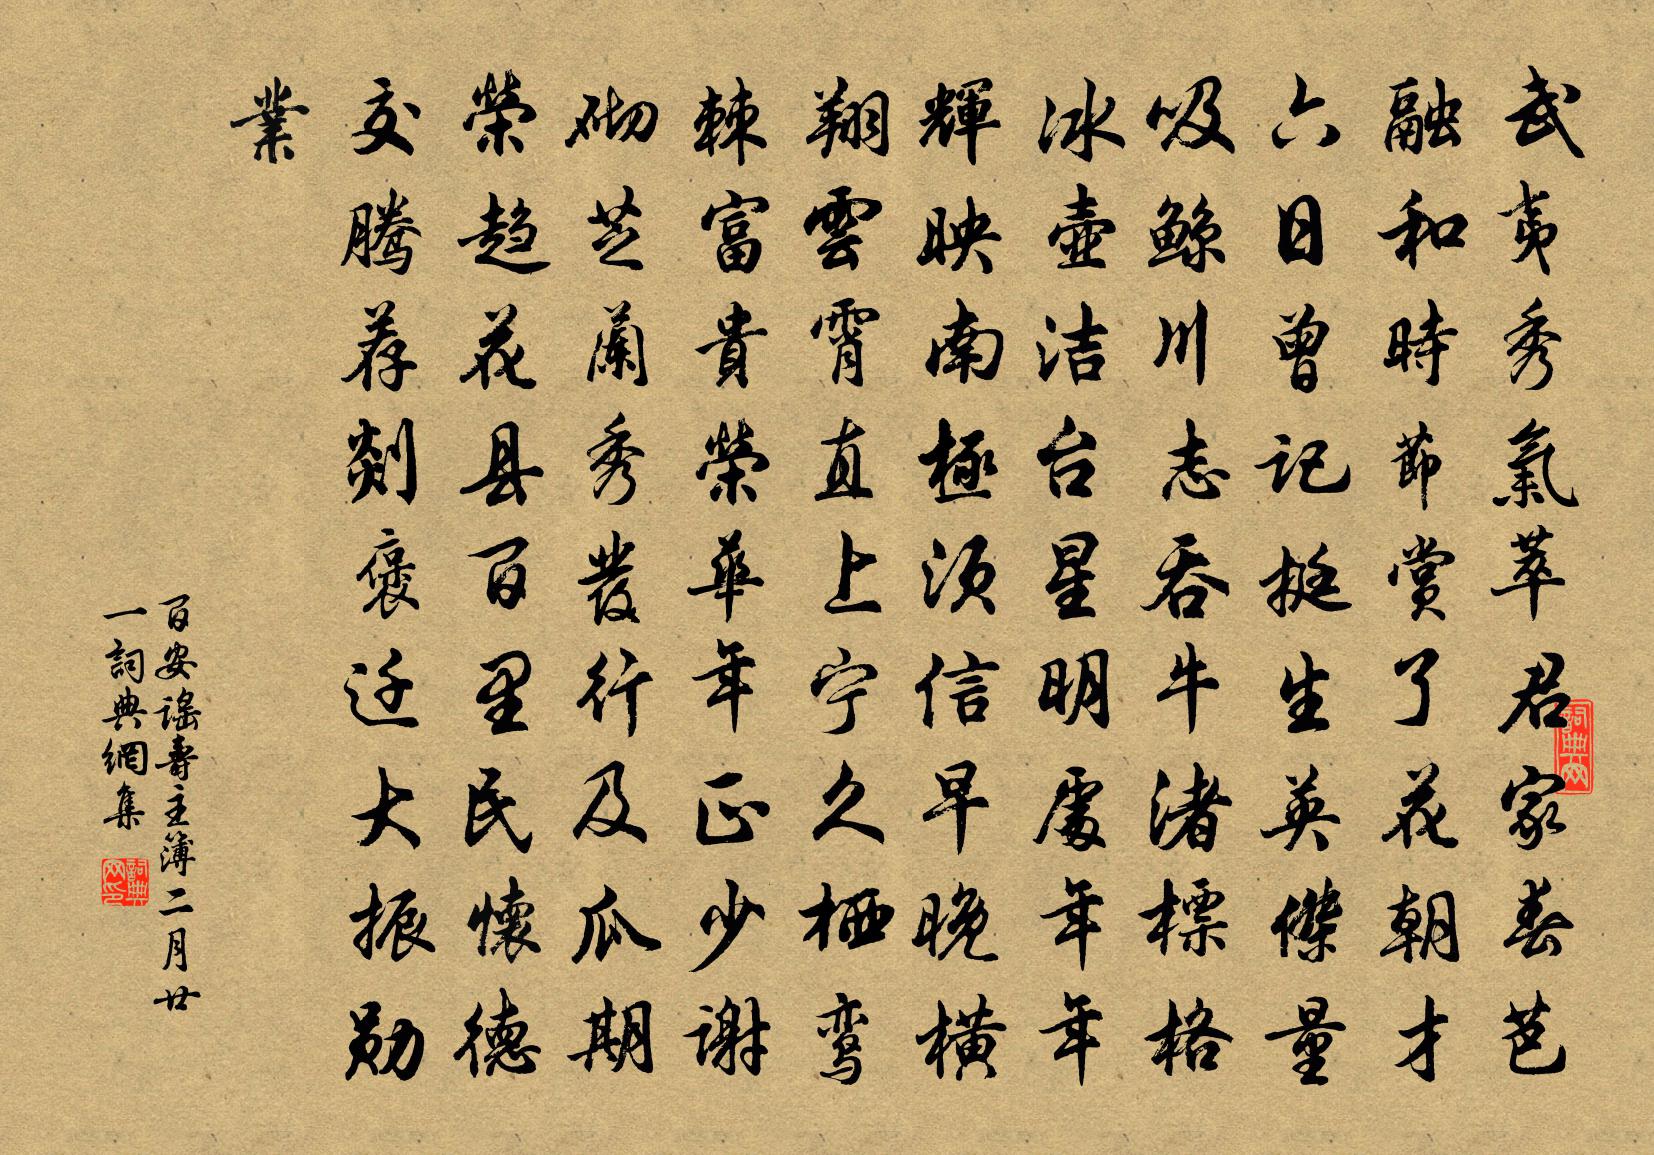 武夷秀氣萃君家春芭
融和時節賞了花朝才
六日曾記挺生英傑量
吸鯨川志吞牛渚標格
冰壺洁台星明處年年
輝映南極須信早晚橫
翔雲霄直上宁久栖鸾
棘富貴榮華年正少谢
砌芝蘭秀發行及瓜期
榮趋花县百里民懷德
交腾荐剡褒迁大振勋
業
百安謠壽主薄二月廿
一詞典網集
詞典网
詞典网印